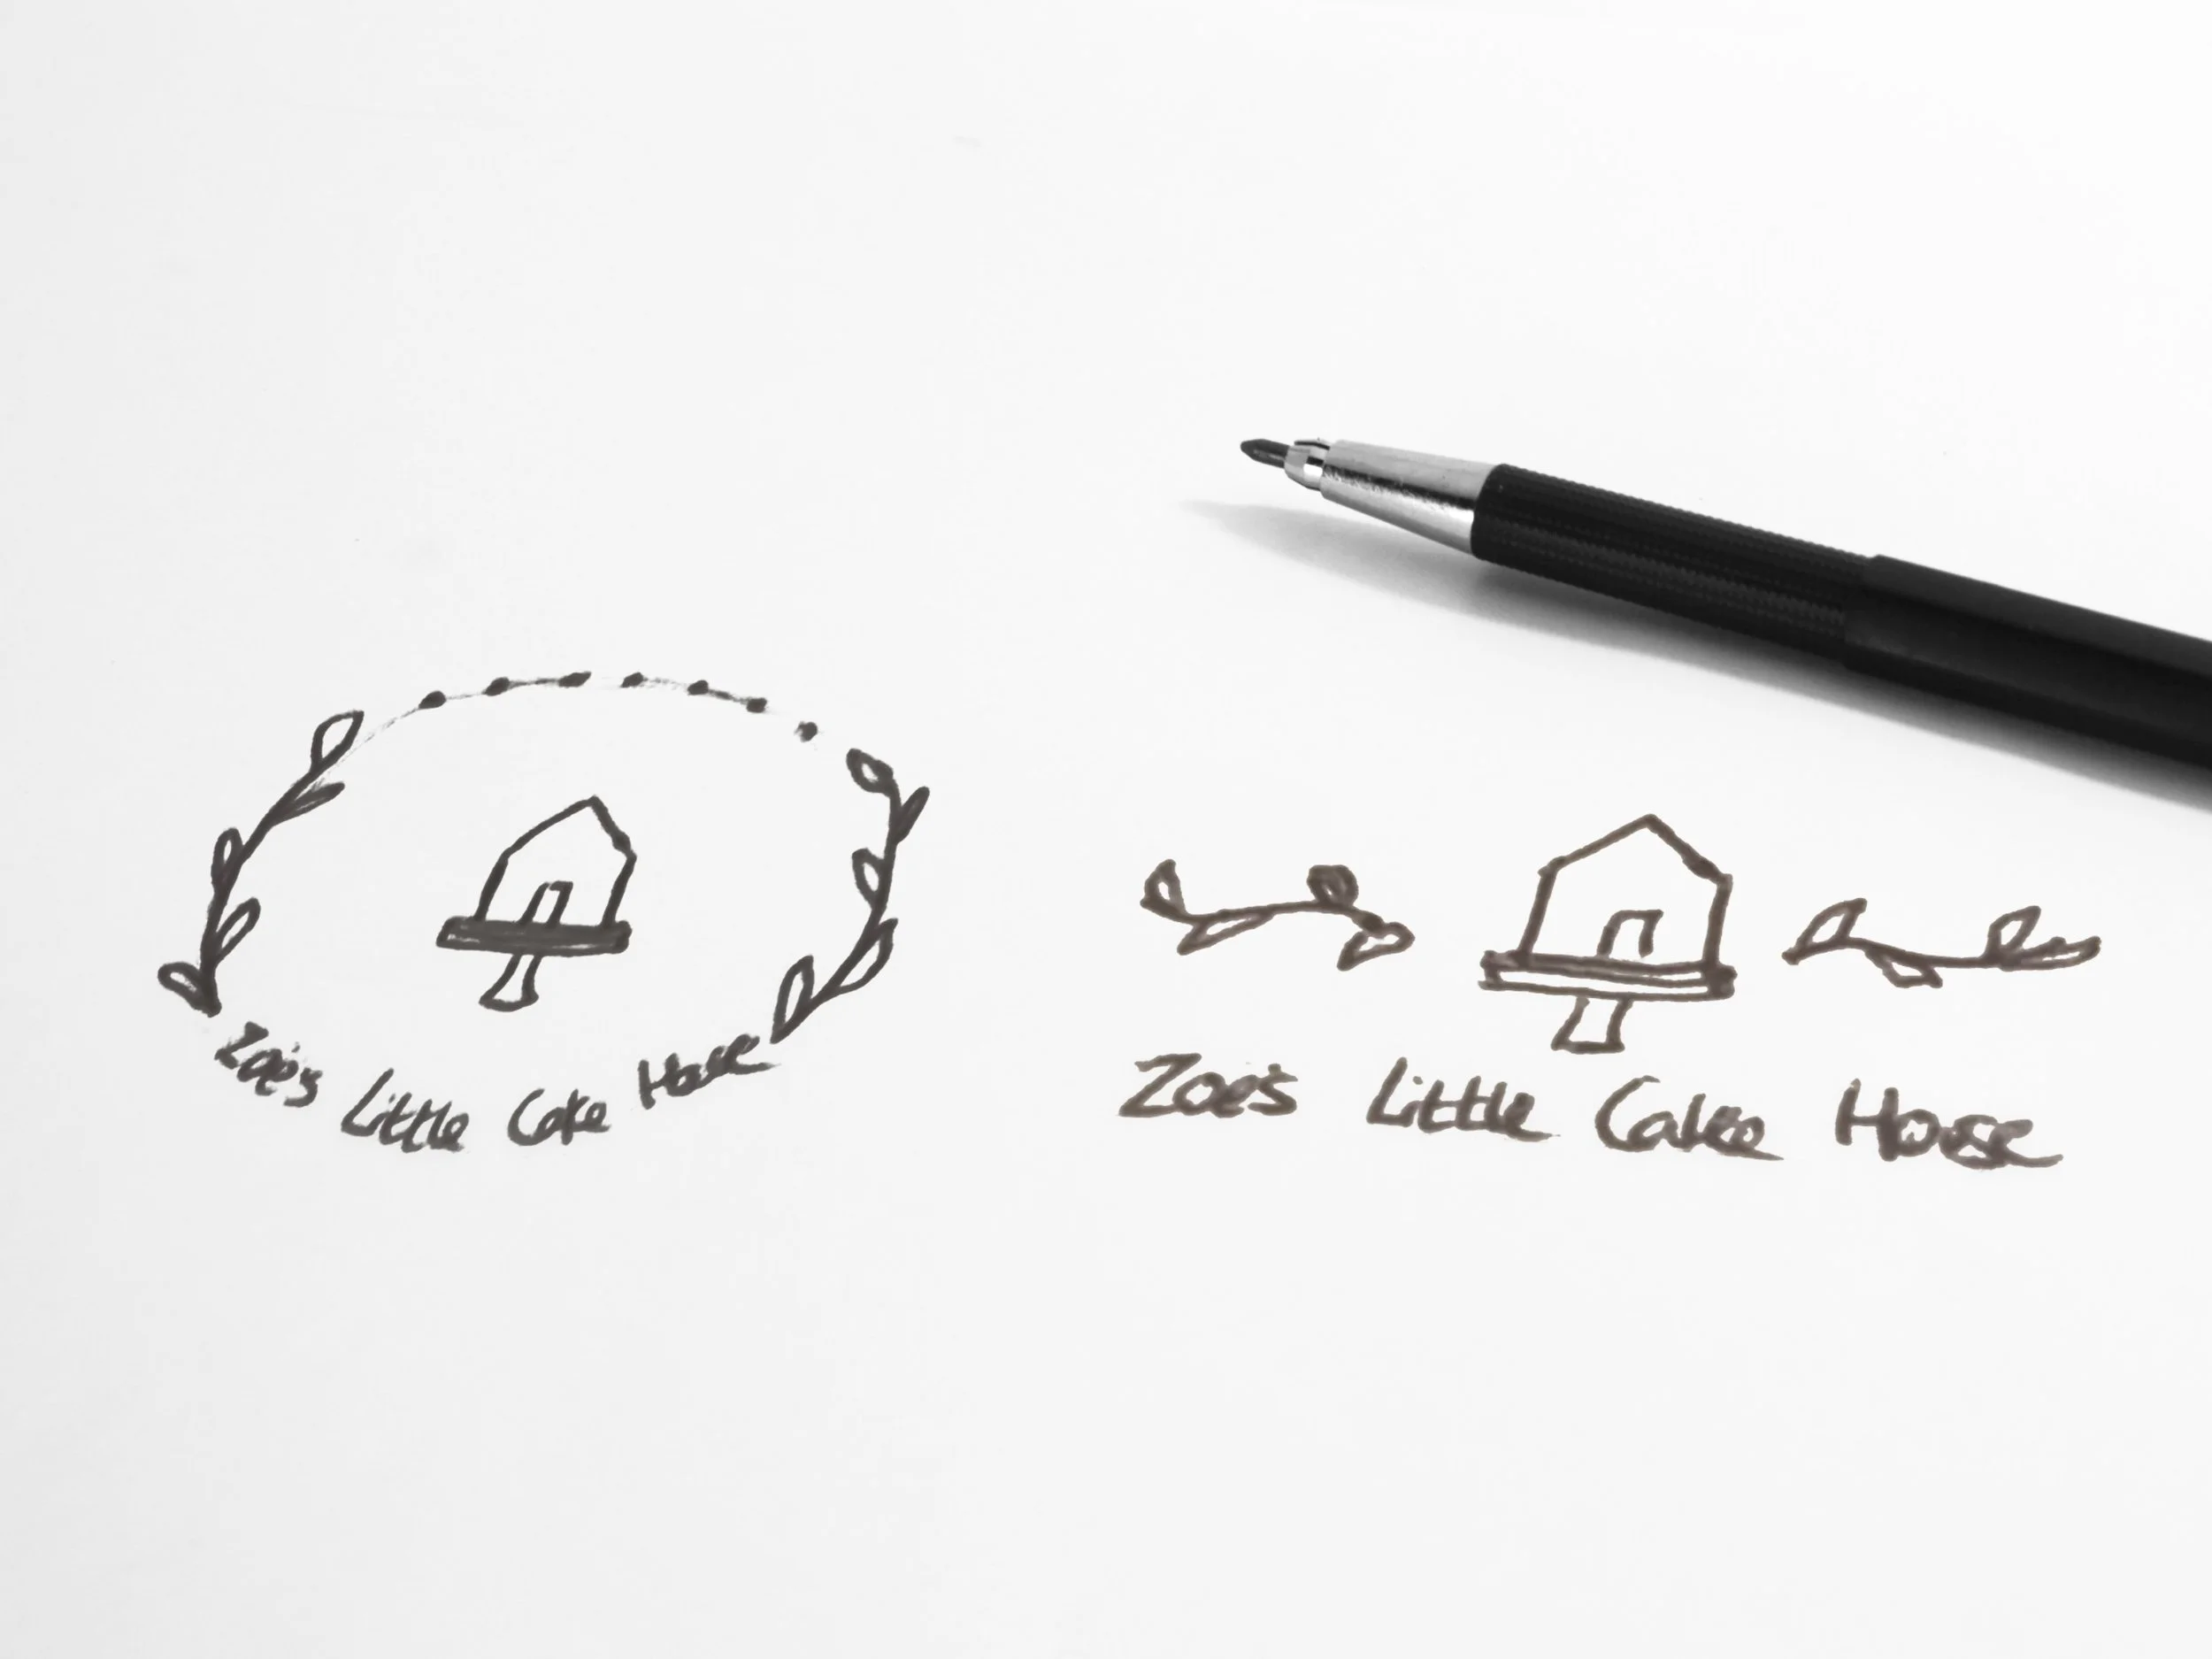 Zoe's Little Cake House
Zoe's Little Cake House